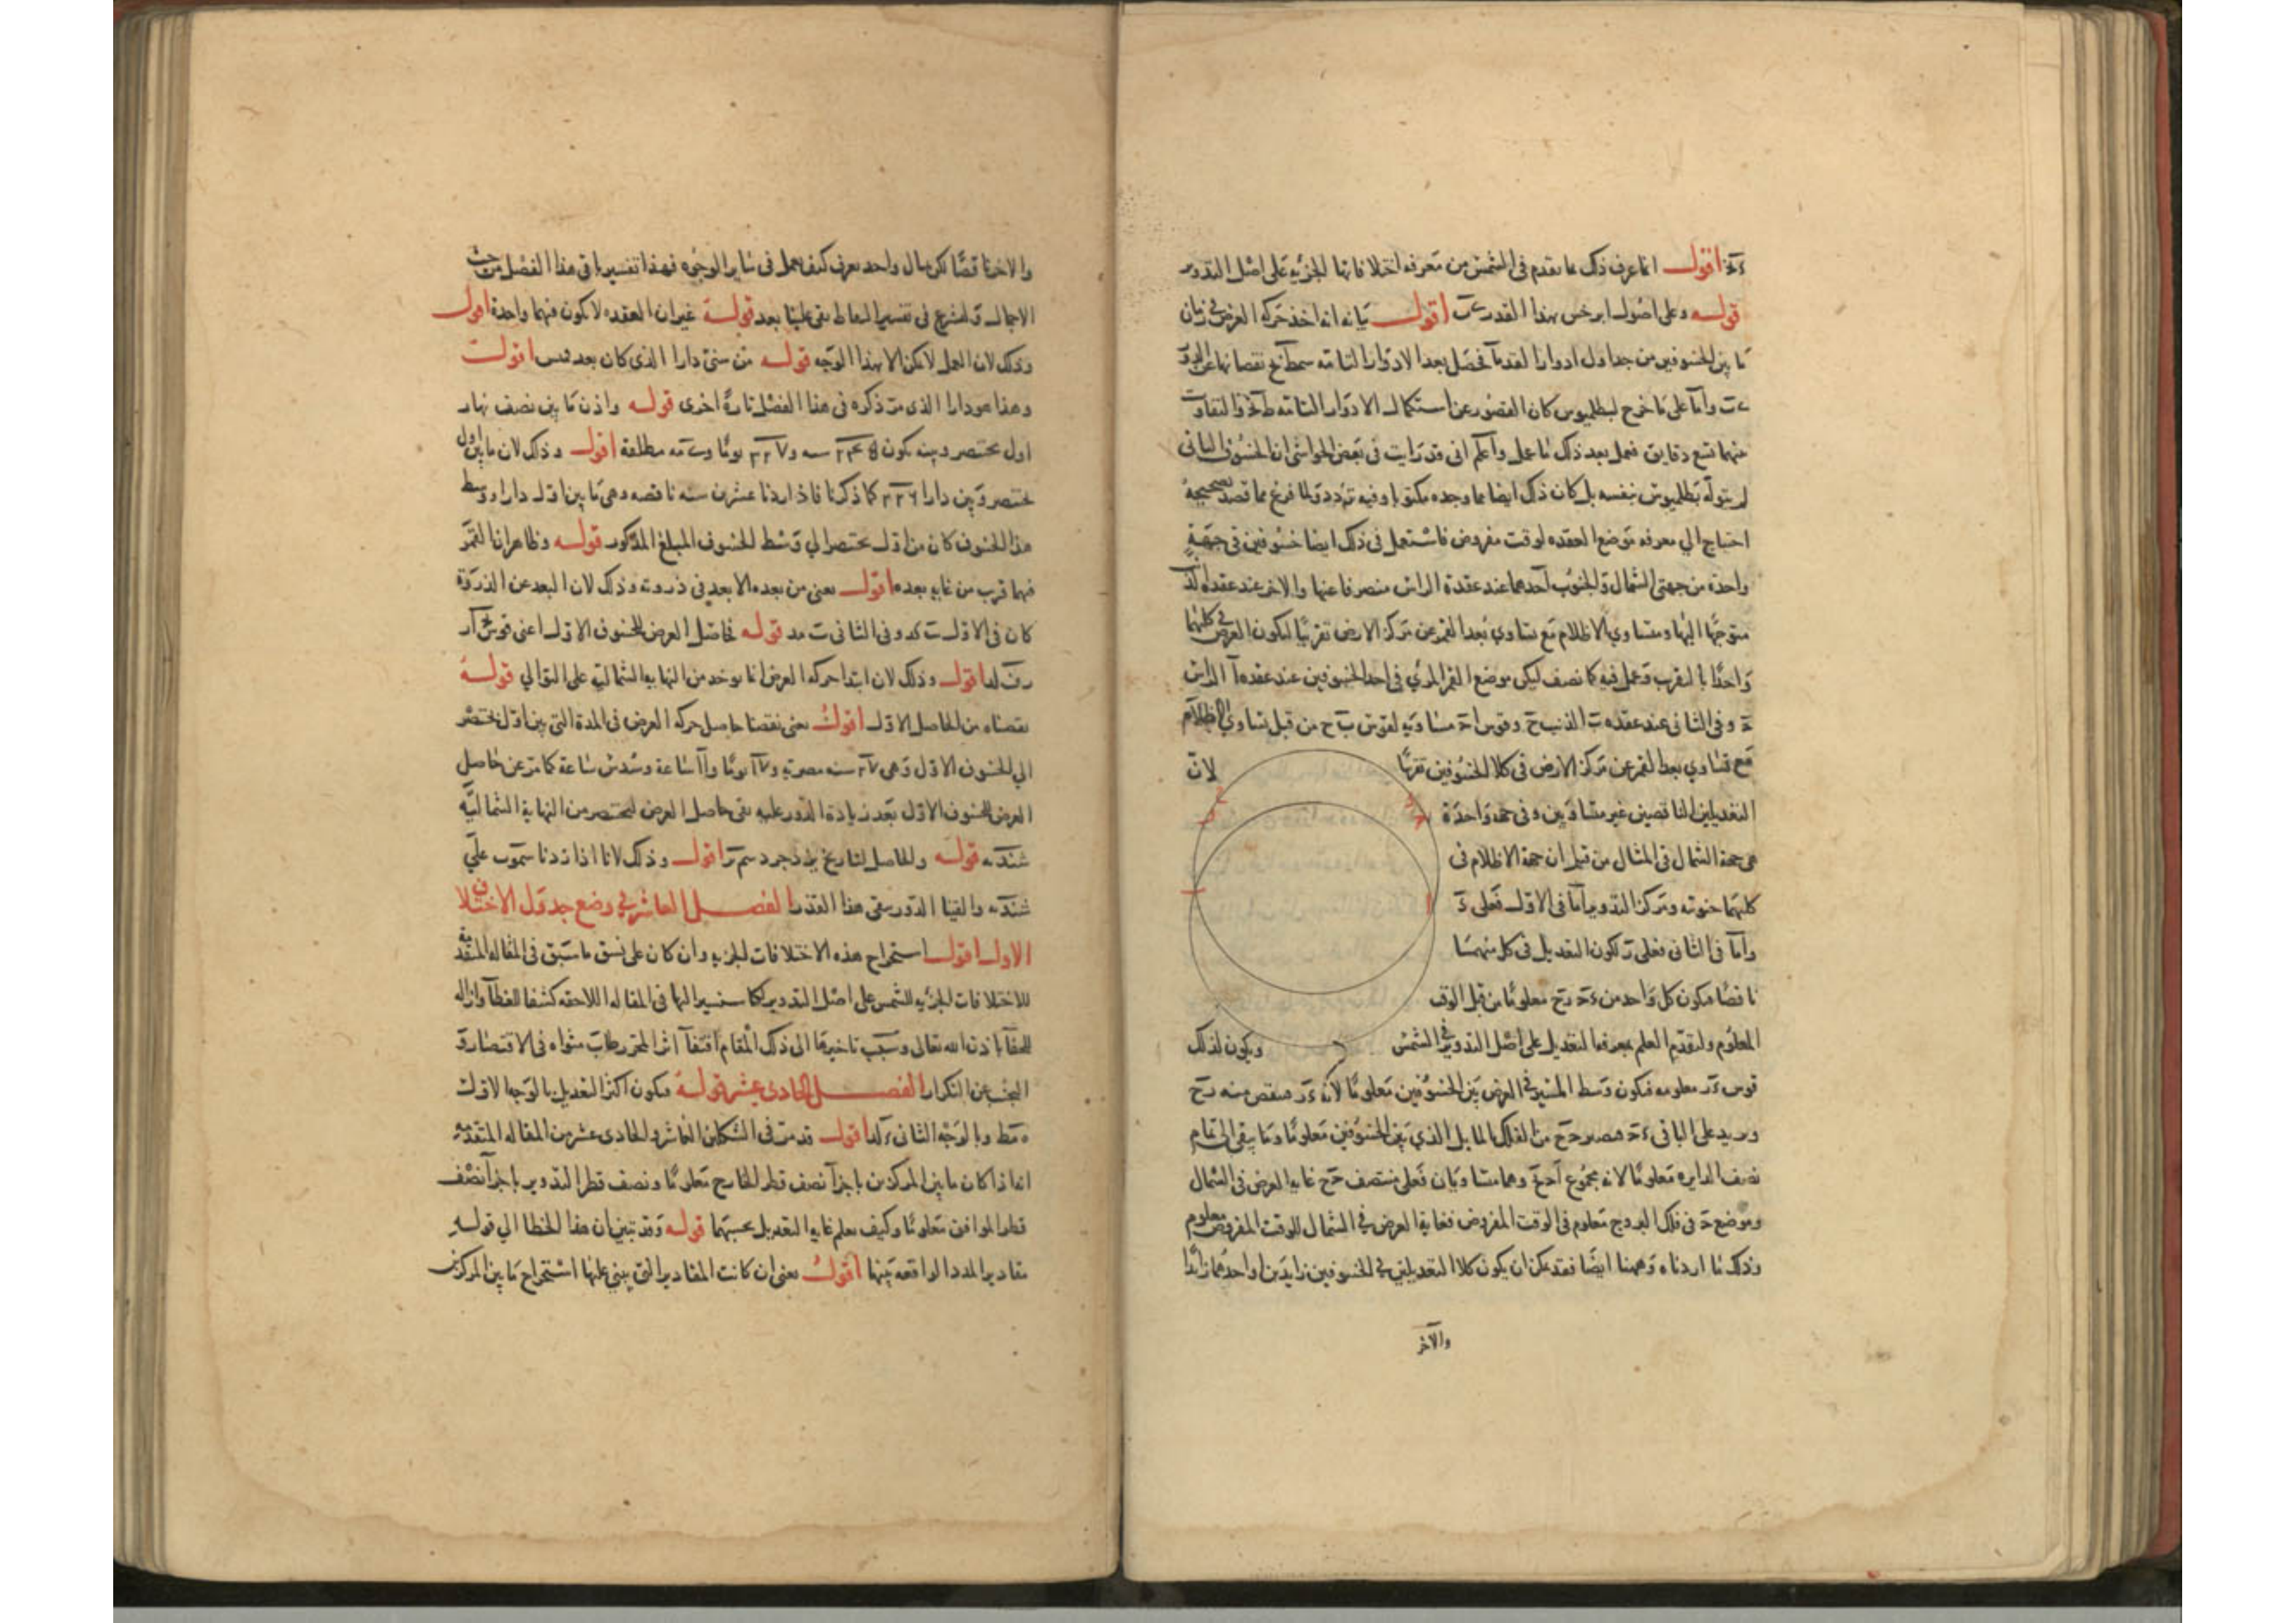 اقول انما عرف ذلك مما تقدم فى الشمس من معرفه اختلافاتها الجزئيه على اصل التدوير
قوله وعلى اصول ابرخس بهذا القدر اقول بيانه انه اخذ حركه العرض فى زمان
ما بين الخسوفين من جداول ادوار القمر فحصل بعد الادوار التامه نقصانها عن الدور
واما على ما خرج لبطلميوس كان القصور عن استكمال الادوار التامه والتفاوت
بينهما تسع دقايق فعمل بعد ذلك ما عمل واعلم انى قد رايت فى بعض الحواشى ان الخسوف الثانى
لم يتوله بطلميوس بنفسه بل كان ذلك ايضا مما وجده مكتوبا وفيه تردد ولما فرغ مما قصد تصحيحه
احتاج الي معرفه موضع العقده لوقت مفروض فاستعمل فى ذلك ايضا خسوفين فى جهة
واحدة من جهتى الشمال والجنوب احدهما عند عقدة الراس منصرفا عنها والاخر عند عقدة الذنب
متوجها اليها ومتساوي الاظلام مع تساوي بعد القمر عن مركز الارض تقريبا ليكون العرض فى كليهما
واحدا بالتقريب وعمل فيه كا نصف ليكن موضع القمر المرئي فى احد الخسوفين عند عقدة ا الراس
وفى الثانى عند عقدة ب الذنب ح وقوس مساويه لقوس ب ح من قبل تساوي الاظلام
مع تساوي بعد القمر عن مركز الارض فى كلا الخسوفين تقريبا لان
التعديلين الناقصين غير متساويين وفى جهة واحدة
هى جهة الشمال فى المثال من قبل ان جهة الاظلام فى
كليهما جنوبيه ومركز التدوير اما فى الاول فعلى
واما فى الثانى فعلى ر لكون التعديل فى كل منهما
ناقصا فيكون كل واحد من معلوما من قبل الوقت
المعلوم ولتقدم العلم بمعرفة التعديل على اصل التدوير فى الشمس ويكون لذلك
قوس معلومه فيكون وسط المسير فى العرض بين الخسوفين معلوما لانه ينقص منه
ويزيد على الباقى فيصير من الفلك المايل الذي بين الخسوفين معلوما وما يبقى الى تمام
نصف الدايره معلوما لانه مجموع وهما متساويان فعلى منتصف غايه العرض فى الشمال
وموضع فى فلك البروج معلوم فى الوقت المفروض فغاية العرض فى الشمال للوقت المفروض معلوم
وذلك ما اردناه وههنا ايضا فقد يمكن ان يكون كلا التعديلين فى الخسوفين زايدين او احدهما زايدا
والآخر
والاخر ناقصا لكن مثال واحد يعرف كيف يعمل فى ساير الوجوه فهذا تفسير ما فى هذا الفصل من حيث
الاجمال ولنشرع فى تفسير الفاظ بقى علينا بعد قوله غير ان العقده لا تكون فيهما واحدة اقول
وذلك لان العمل لا يمكن الا بهذا الوجه قوله من سنى دارا الذى كان بعد اقول
وهذا هو دارا الذى مر ذكره فى هذا الفصل تارة اخرى قوله واذن ما بين نصف نهار
اول بختنصر وبينه يكون يوما مطلقة اقول وذلك لان ما بين اول
بختنصر وبين دارا ٢٢٦ كما ذكرنا فاذا زدنا عشرين سنه ناقصه وهى ما بين اول دارا ووسط
هذا الخسوف كان من اول بختنصر الي وسط الخسوف المبلغ المذكور قوله وظاهر ان القمر
فيهما قرب من غايه بعده اقول يعنى من بعده الابعد فى ذروته وذلك لان البعد عن الذروة
كان فى الاول وفى الثانى قوله فاصل العرض للخسوف الاول اعنى قوس
اقول وذلك لان ابتدا حركه العرض انما يوخذ من النهايه الشماليه على التوالي قوله
نقصناه من الحاصل الاول اقول يعنى نقصنا حاصل حركه العرض فى المدة التى بين اول بختنصر
الي الخسوف الاول وهى سنه مصريه يوما ساعة وسدس ساعة كما مر عن حاصل
العرض للخسوف الاول بعد زيادة الدور عليه بقى حاصل العرض لبختنصر من النهاية الشمالية
قوله والحاصل لتاريخ يزدجرد اقول وذلك لانا اذا زدنا علي
والقينا الدور بقى هذا القدر الفصل العاشر فى وضع جدول الاختلاف
الاول اقول استخراج هذه الاختلافات الجزئيه وان كان على نسق ما سبق فى المقاله المتقدمه
للاختلافات الجزئيه للشمس على اصل التدوير لكنا سنشير اليها فى المقاله اللاحقه كشفا للغطآ وازاله
للخفآ باذن الله تعالى وسبب تاخيرها الى ذلك المقام اقتفآ اثر المحرر طاب مثواه فى الاقتصار و
التجنب عن التكرار الفصل الحادى عشر قوله فيكون اكثر التعديل بالوجه الاول
وبالوجه الثانى اقول قد مر فى الشكلين العاشر والحادى عشر من المقاله المتقدمه
انه اذا كان ما بين المركزين باجزآ نصف قطر الخارج معلوما ونصف قطر التدوير باجزآ نصف
قطر الموافق معلوما وكيف يعلم غاية التعديل بحسبهما قوله وقد تبين ان هذا الخطا الي قوله
مقادير المدد الواقعه بينها اقول يعنى ان كانت المقادير التى يبنى عليها استخراج ما بين المركزين